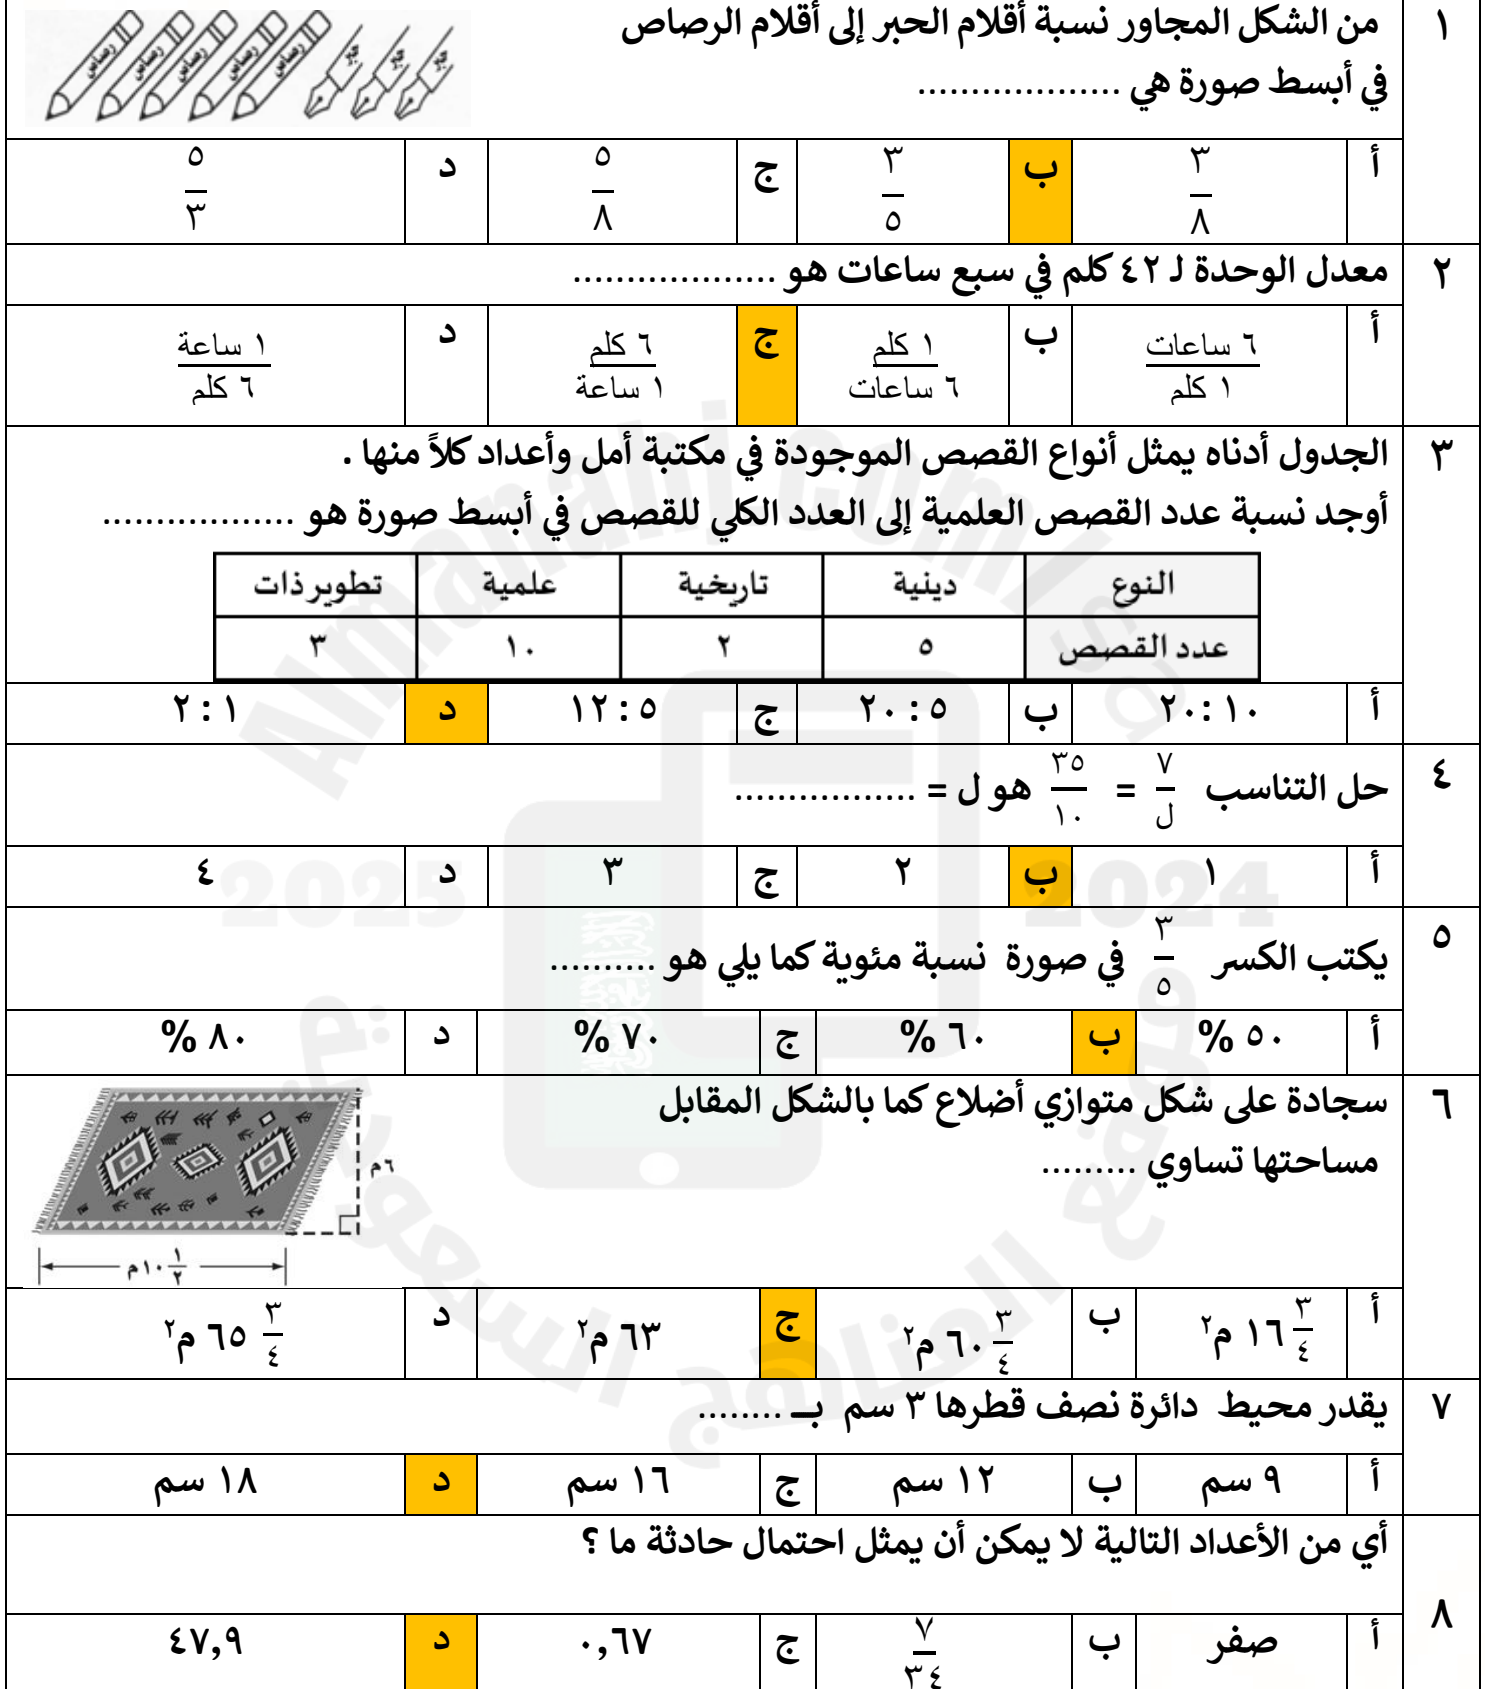 ١ من الشكل المجاور نسبة أقلام الحبر إلى أقلام الرصاص
في أبسط صورة هي ...................
رصاص رصاص رصاص رصاص رصاص حبر حبر حبر
أ ٣/٨ ب ٣/٥ ج ٥/٨ د ٥/٣
٢ معدل الوحدة لـ ٤٢ كلم في سبع ساعات هو ...................
أ ٦ ساعات / ١ كلم ب ١ كلم / ٦ ساعات ج ٦ كلم / ١ ساعة د ١ ساعة / ٦ كلم
٣ الجدول أدناه يمثل أنواع القصص الموجودة في مكتبة أمل وأعداد كلاً منها .
أوجد نسبة عدد القصص العلمية إلى العدد الكلي للقصص في أبسط صورة هو ..................
النوع دينية تاريخية علمية تطوير ذات
عدد القصص ٥ ٢ ١٠ ٣
أ ١٠ :٢٠ ب ٥ : ٢٠ ج ٥ : ١٢ د ١ : ٢
٤ حل التناسب ٧/ل = ٣٥/١٠ هو ل = .................
أ ١ ب ٢ ج ٣ د ٤
٥ يكتب الكسر ٣/٥ في صورة نسبة مئوية كما يلي هو ..........
أ ٥٠ % ب ٦٠ % ج ٧٠ % د ٨٠ %
٦ سجادة على شكل متوازي أضلاع كما بالشكل المقابل
مساحتها تساوي .........
٦ م
١٠ ١/٢ م
أ ١٦ ٣/٤ م٢ ب ٦٠ ٣/٤ م٢ ج ٦٣ م٢ د ٦٥ ٣/٤ م٢
٧ يقدر محيط دائرة نصف قطرها ٣ سم بــ ........
أ ٩ سم ب ١٢ سم ج ١٦ سم د ١٨ سم
٨ أي من الأعداد التالية لا يمكن أن يمثل احتمال حادثة ما ؟
أ صفر ب ٧/٣٤ ج ٠,٦٧ د ٤٧,٩
Almanahj.com/sa
2025 2024
موقع المناهج السعودية